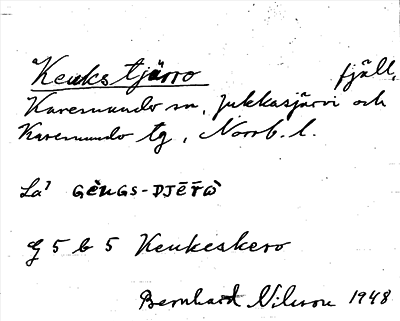 Keukstjärro fjäll,
Karesuando sn, Jukkasjärvi och
Karesuando tg, Norrb. l.
La⁷ GĕuGs-DJĒrò
Ej 5 b 5 Keukeskero
Bernhard Nilsson 1948